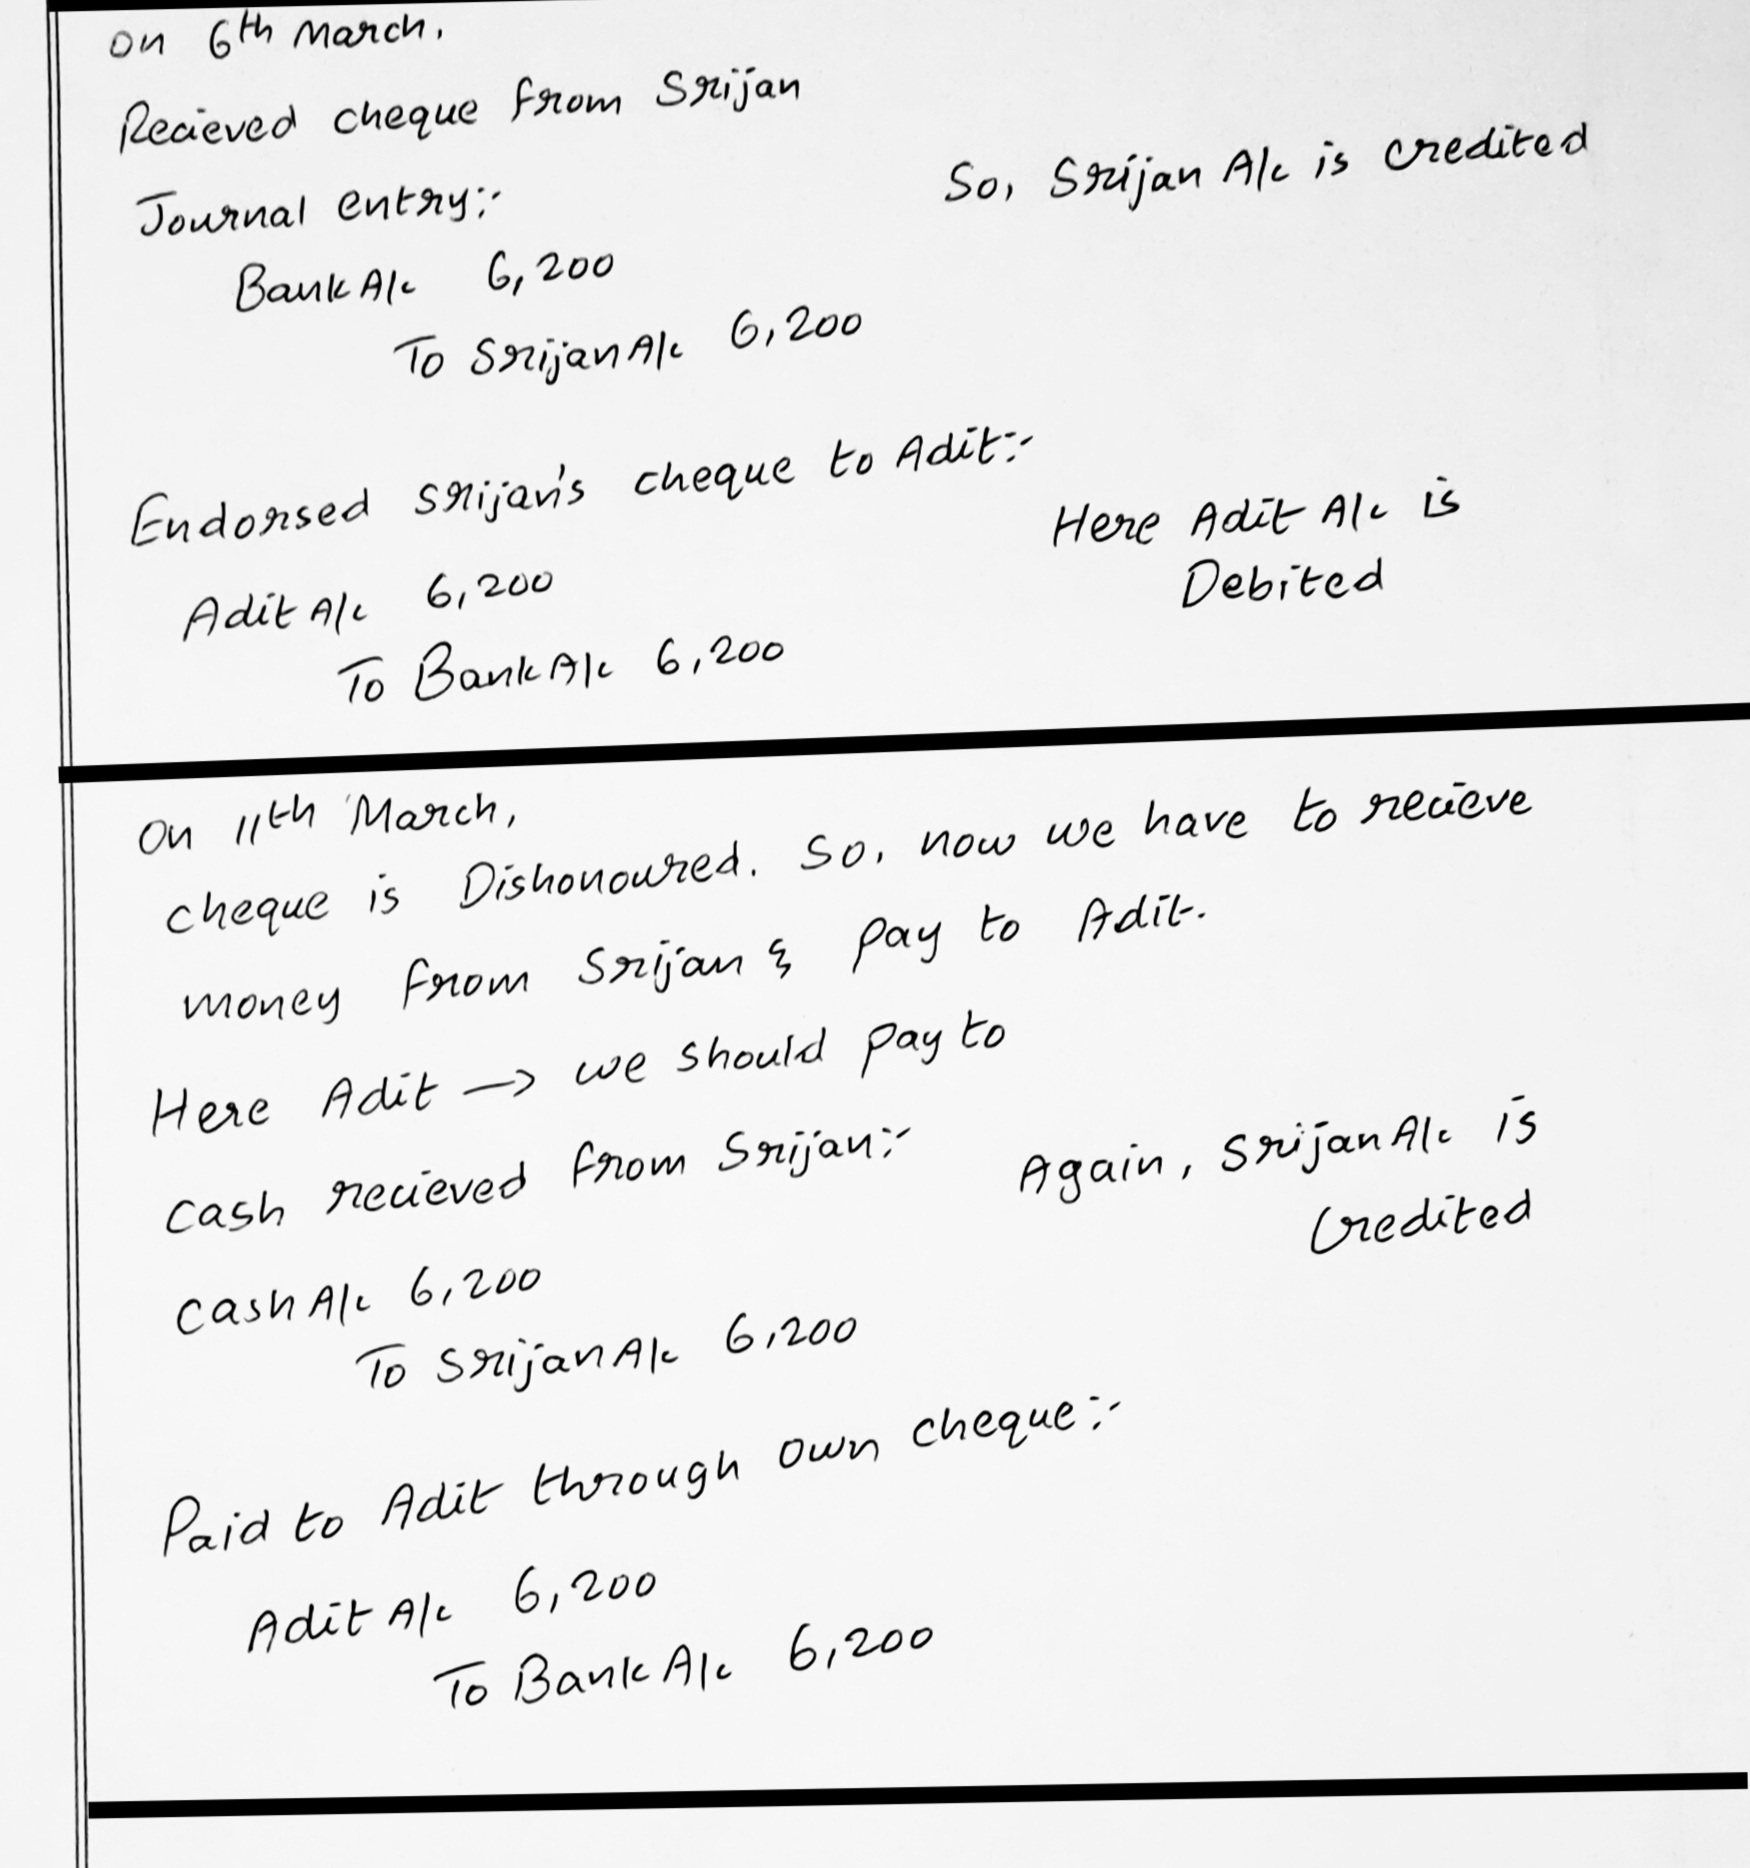 on 6th March,
Recieved cheque from Srijan
So, Srijan A/c is credited
Journal entry:-
Bank A/c 6,200
To Srijan A/c 6,200
Endorsed srijan's cheque to Adit:-
Here Adit A/c is
Debited
Adit A/c 6,200
To Bank A/c 6,200
On 11th March,
cheque is Dishonoured. So, now we have to recieve
money from Srijan & pay to Adit.
Here Adit → we should pay to
cash recieved from Srijan:-
Again, Srijan A/c is
Credited
cash A/c 6,200
To Srijan A/c 6,200
Paid to Adit through own cheque:-
Adit A/c 6,200
To Bank A/c 6,200